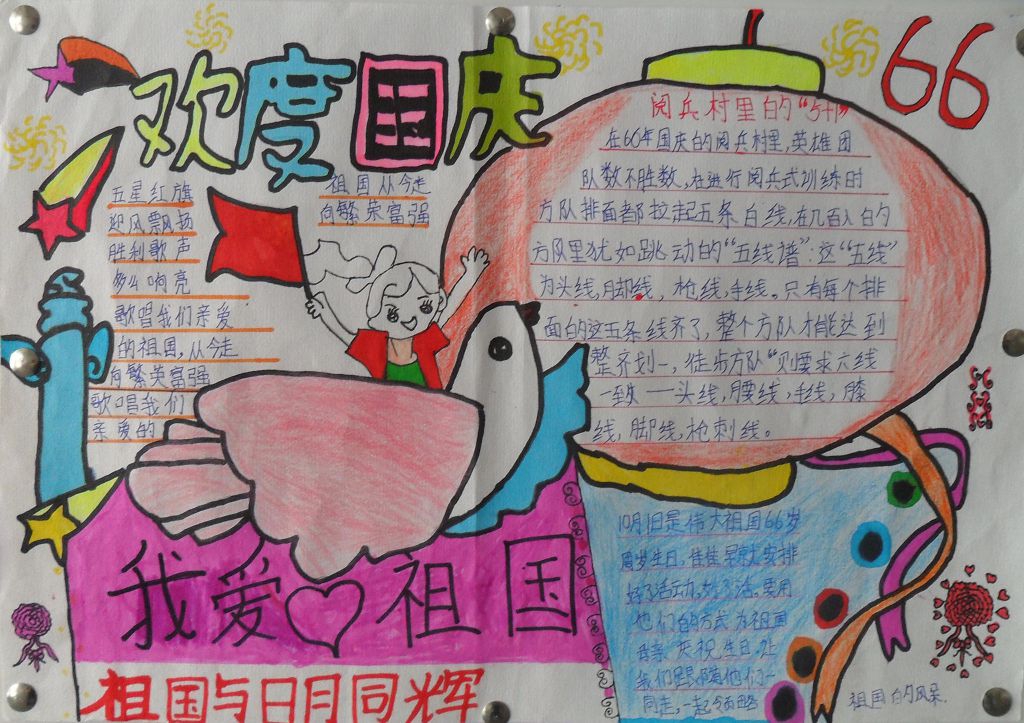 欢度国庆
66
五星红旗
迎风飘扬
胜利歌声
多么响亮
歌唱我们亲爱
的祖国,从今走
向繁荣富强
歌唱我们
亲爱的
祖国从今走
向繁荣富强
阅兵村里的“5卅”
在60年国庆的阅兵村里,英雄团
队数不胜数,在进行阅兵式训练时
方队排面都拉起五条白线,在几百人的
方队里犹如跳动的“五线谱”:这“五线”
为头线,脚线,枪线,手线。只有每个排
面的这五条线齐了,整个方队才能达到
整齐划一,徒步方队“则要求六线
一致——头线,腰线,手线,膝
线,脚线,枪刺线。
我爱祖国
祖国与日月同辉
10月1日是伟大祖国66岁
周岁生日,佳佳早就安排
好了活动,
他们的方式为祖国
母亲庆祝生日,让
我们跟随他们一
同走,一起领略
祖国的风采.